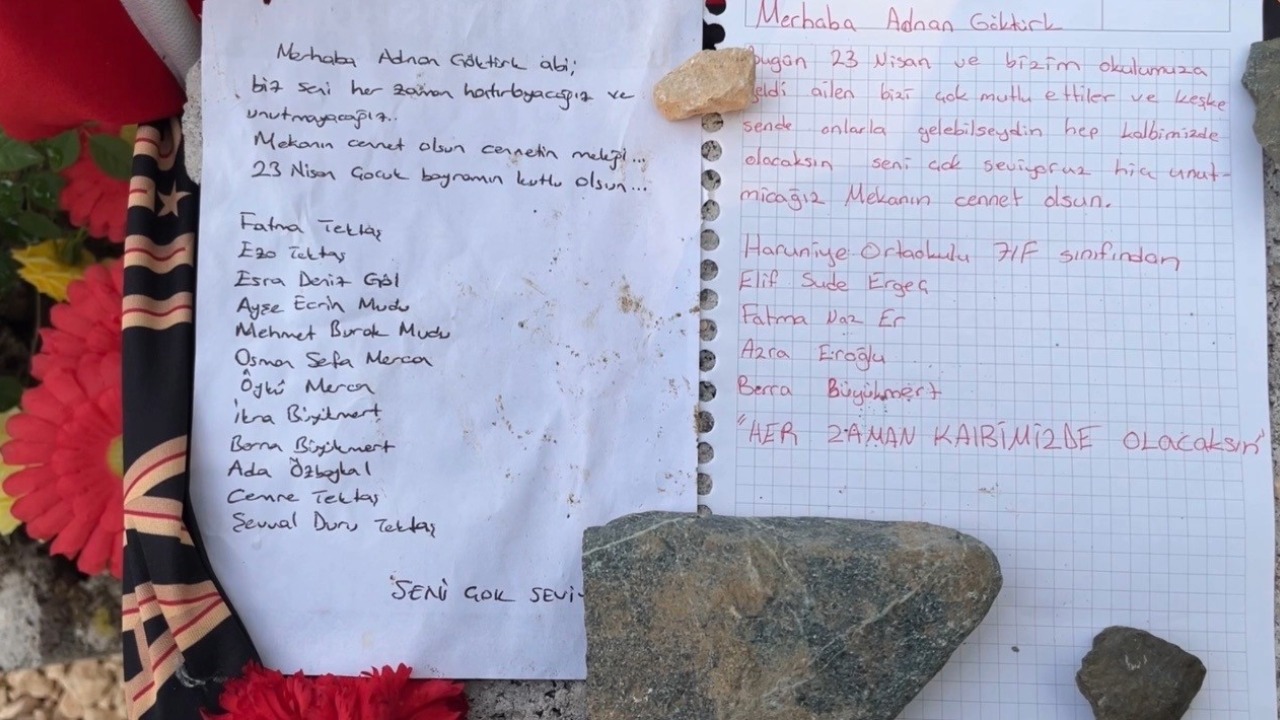 Merhaba Adnan Göktürk abi;
biz seni her zaman hatırlayacağız ve
unutmayacağız..
Mekanın cennet olsun cennetin meleği...
23 Nisan Çocuk bayramın kutlu olsun...
Fatma Tektaş
Ezo Tektaş
Esra Deniz Göl
Ayşe Ecrin Mudu
Mehmet Burak Mudu
Osman Sefa Mercan
Öykü Mercan
İkra Büyükmert
Berra Büyükmert
Ada Özbaykal
Cemre Tektaş
Şevval Duru Tektaş
SENİ ÇOK SEVİ
Merhaba Adnan Göktürk
Bugün 23 Nisan ve bizim okulumuza
geldi ailen bizi çok mutlu ettiler ve keşke
sende onlarla gelebilseydin hep kalbimizde
olacaksın seni çok seviyoruz hiç unut-
mıcağız Mekanın cennet olsun.
Haruniye Ortaokulu 7/F sınıfından
Elif Sude Ergeç
Fatma Naz Er
Azra Eroğlu
Berra Büyükmert
"HER ZAMAN KALBİMİZDE OLACAKSIN"